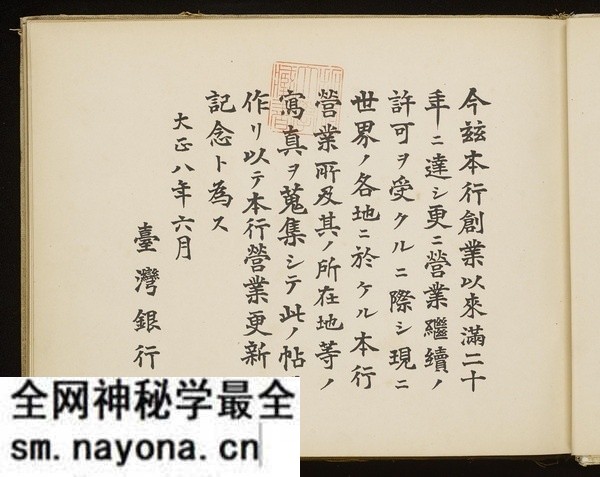 今玆本行創業以來滿二十
年ニ達シ更ニ營業繼續ノ
許可ヲ受クルニ際シ現ニ
世界ノ各地ニ於ケル本行
營業所及其ノ所在地等ノ
寫真ヲ蒐集シテ此ノ帖
作リ以テ本行營業更新
記念ト為ス
大正八年六月
臺灣銀行
全网神秘学最全
sm.nayona.cn